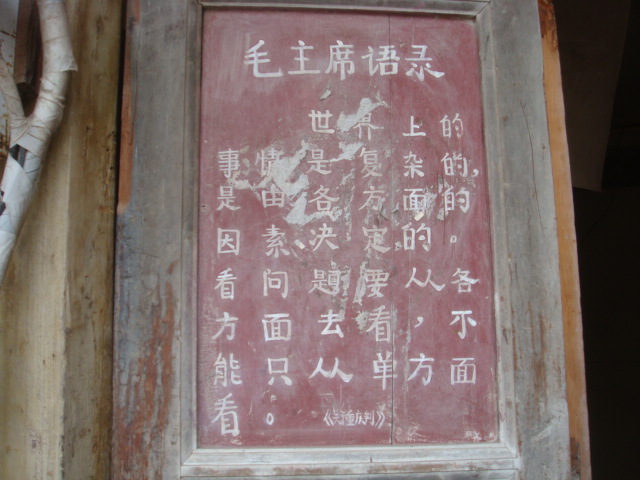 毛主席语录
世界上的
事情是复杂的,
是由各方面的
因素决定的。
看问题要从各
方面去看,不
能只从单方面
看。
《关于重庆谈判》